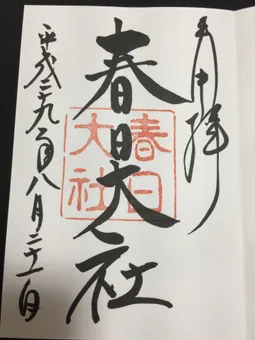 奉拝
春日大社
春日
大社
平成二九年八月二十一日